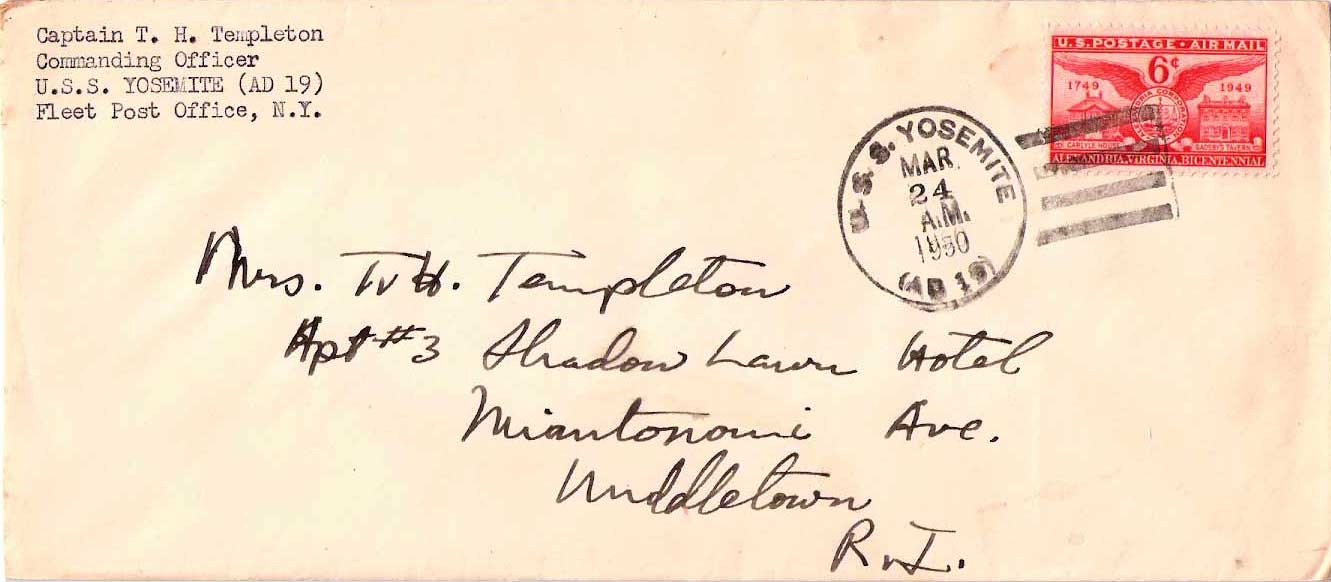 Captain T. H. Templeton
Commanding Officer
U.S.S. YOSEMITE (AD 19)
Fleet Post Office, N.Y.
U.S. POSTAGE • AIR MAIL
6¢
1749 1949
CARLYLE HOUSE GADSBY'S TAVERN
ALEXANDRIA, VIRGINIA, BICENTENNIAL
U.S.S. YOSEMITE
MAR
24
A.M.
1950
(AD 19)
Mrs. T. H. Templeton
Apt #3 Shadow Lawn Hotel
Miantonomi Ave.
Middletown
R.I.